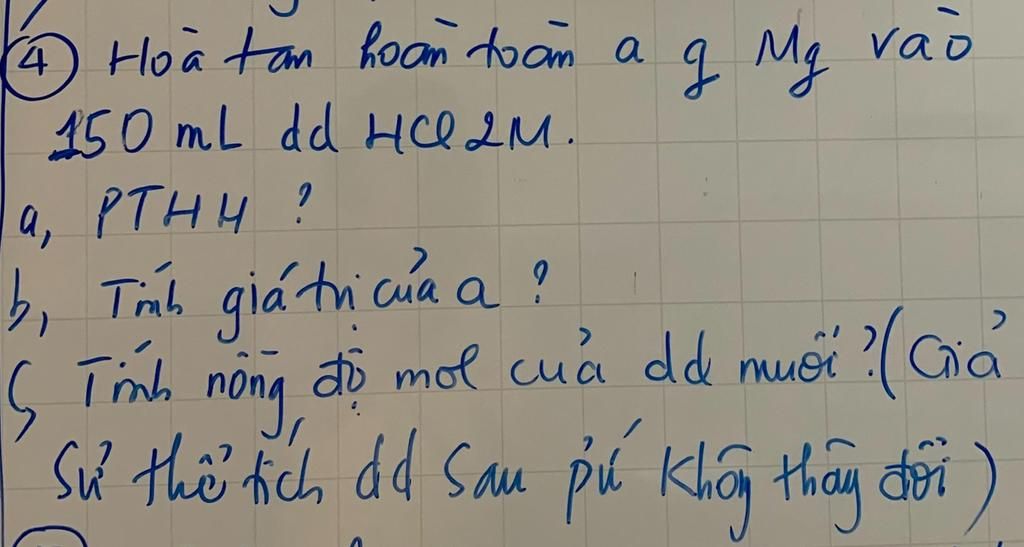 ④ Hoà tan hoàn toàn a g Mg vào
150 mL dd HCl 2M.
a, PTHH ?
b, Tính giá trị của a ?
c, Tính nồng độ mol của dd muối ? (Giả
sử thể tích dd sau pứ không thay đổi)